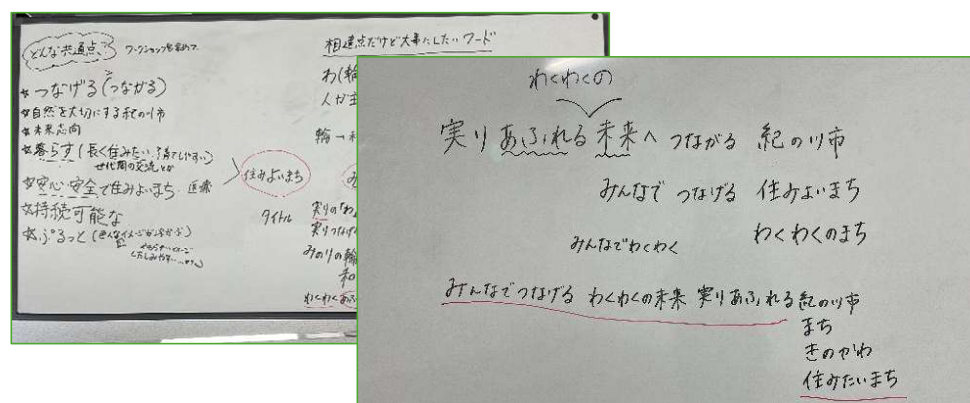 どんな共通点、?
ワークショップを含めて
★つなげる(つながる)
★自然を大切にする紀の川市
★未来志向
★暮らす(長く住みたい、子育てしやすい)
世代間の交流とか
☆安心・安全で住みよいまち、医療
☆持続可能な
☆ぷるっと
住みよいまち
タイトル
相違点だけど大事にしたいワード
わ(輪
人が主
輪→和
実りの「わ」
実りつなげ
みのりの輪
和
わくわくあふ
わくわくの
実りあふれる未来へつながる 紀の川市
みんなで つなげる 住みよいまち
わくわくのまち
みんなでわくわく
みんなでつなげる わくわくの未来 実りあふれる紀の川市
まち
きのかわ
住みたいまち